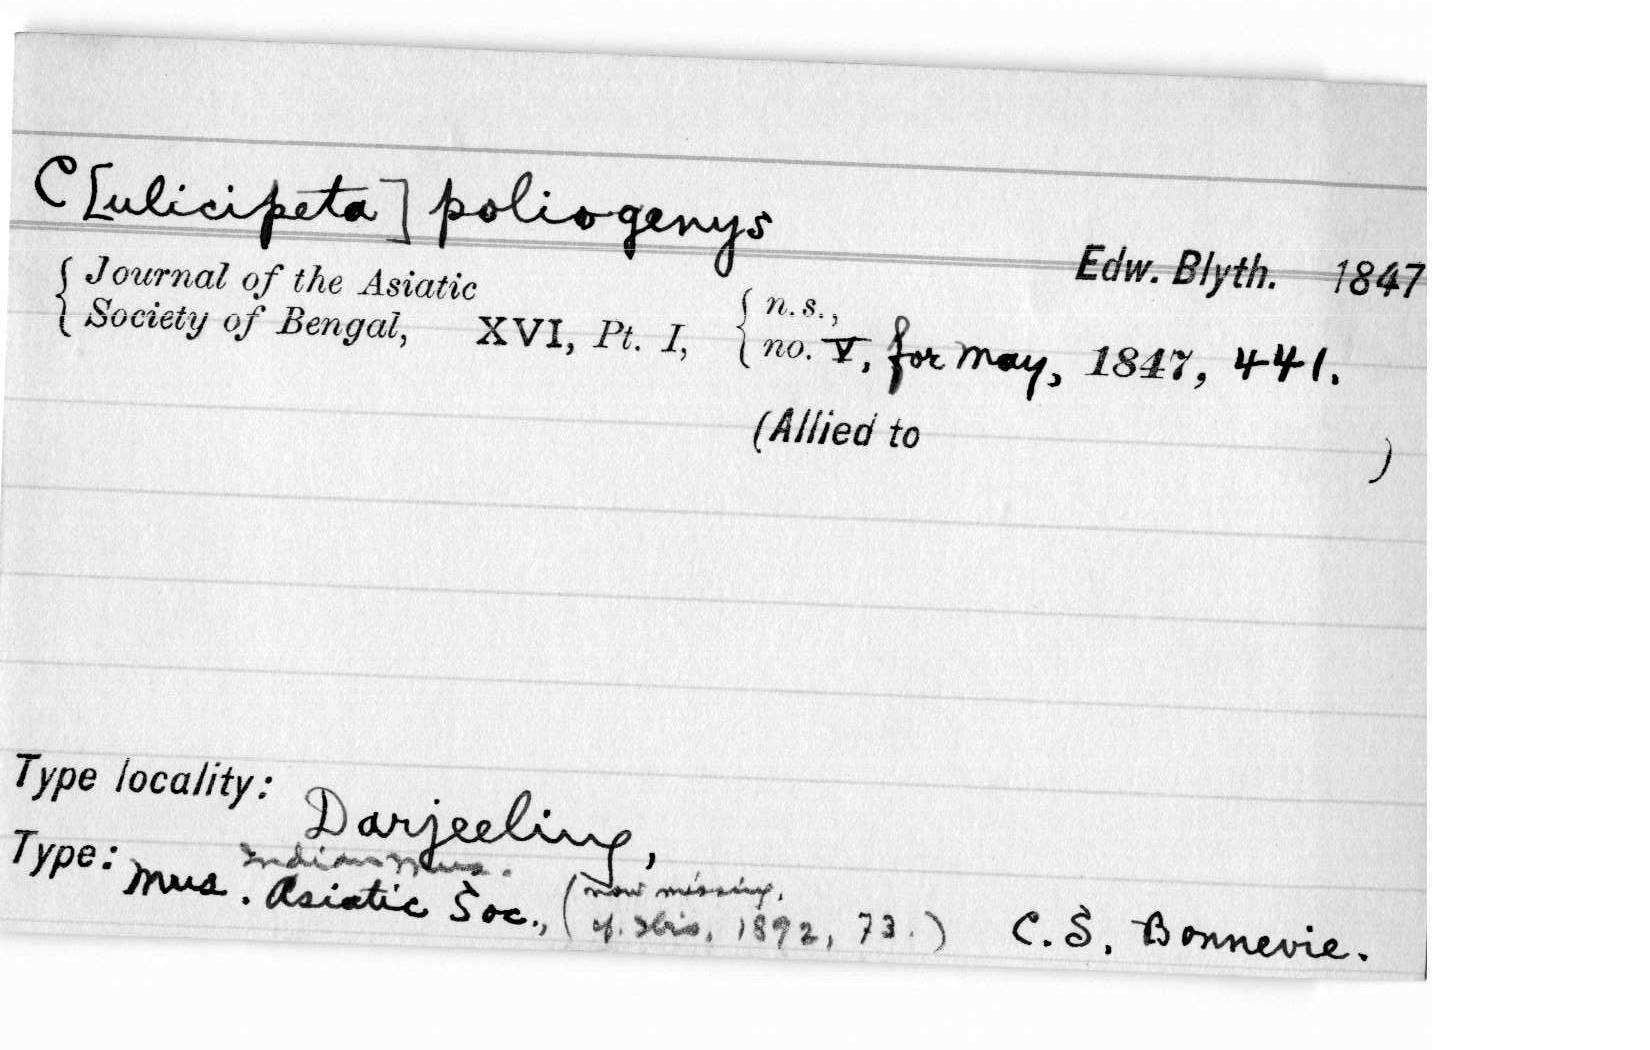 C[ulicipeta] poliogenys
Edw. Blyth. 1847
{ Journal of the Asiatic
Society of Bengal, XVI, Pt. I, { n.s.,
no. V, for May, 1847, 441.
(Allied to )
Type locality: Darjeeling,
Indian Mus.
Type: Mus. Asiatic Soc., (now missing,
cf. Ibis, 1892, 73.) C. S. Bonnevie.